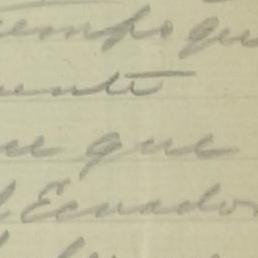 tiempo que
ente
ue que
l Ecuador